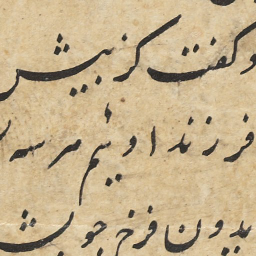 و گفت کز بیش
فرزند اوئیم هر سه
بدون فرخ جو